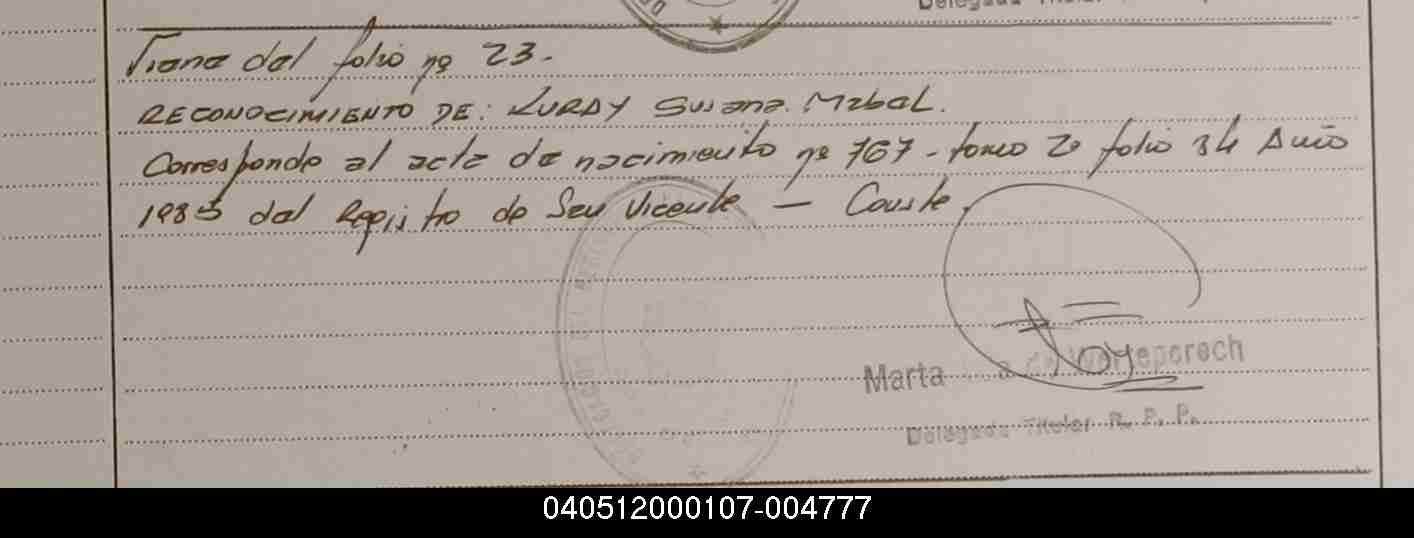 Delegada Titular
Viene del folio nº 23.
RECONOCIMIENTO DE: KURDY Susana Mabel.
Corresponde al acta de nacimiento nº 767 - tomo 2º folio 34 Año
1985 del Registro de San Vicente — Conste.
Marta
Delegada Titular R. P. P.
040512000107-004777